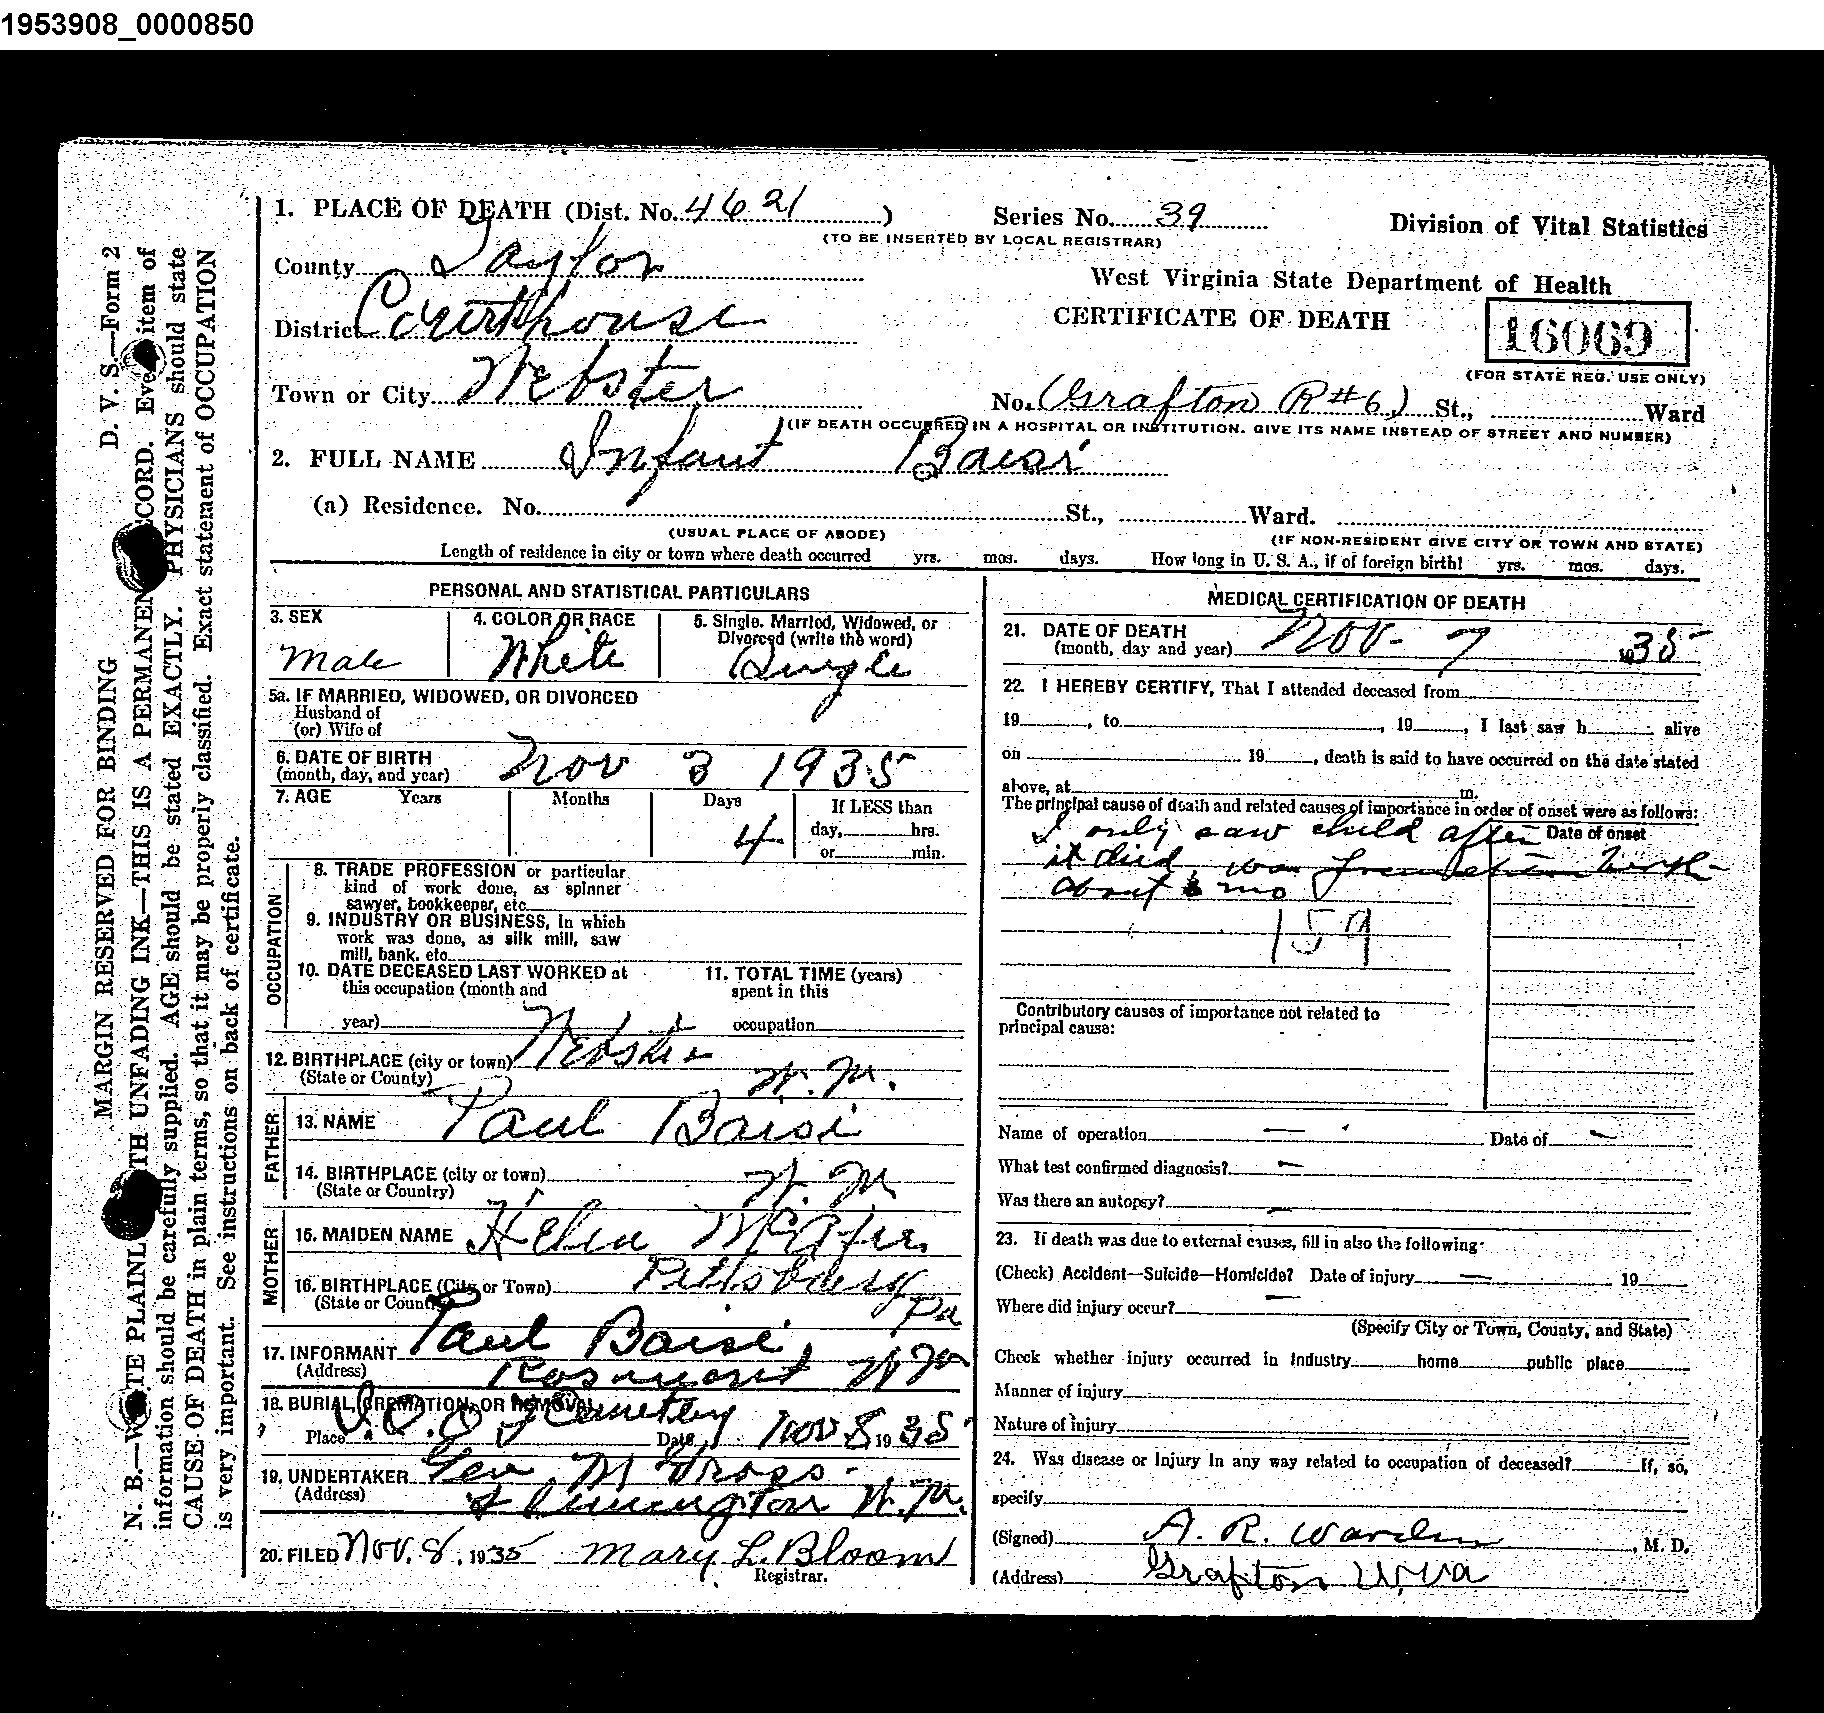 1953908_0000850
1. PLACE OF DEATH (Dist. No. 4621)
Series No. 39
(TO BE INSERTED BY LOCAL REGISTRAR)
Division of Vital Statistics
County Taylor
West Virginia State Department of Health
CERTIFICATE OF DEATH
16069
(FOR STATE REG. USE ONLY)
District Courthouse
Town or City Webster
No. (Grafton R#6) St., Ward
(IF DEATH OCCURRED IN A HOSPITAL OR INSTITUTION. GIVE ITS NAME INSTEAD OF STREET AND NUMBER)
2. FULL NAME Infant Baisi
(a) Residence. No. St., Ward.
(USUAL PLACE OF ABODE)
(IF NON-RESIDENT GIVE CITY OR TOWN AND STATE)
Length of residence in city or town where death occurred yrs. mos. days. How long in U. S. A., if of foreign birth! yrs. mos. days.
PERSONAL AND STATISTICAL PARTICULARS
3. SEX
Male
4. COLOR OR RACE
White
5. Single. Married, Widowed, or
Divorced (write the word)
Single
5a. IF MARRIED, WIDOWED, OR DIVORCED
Husband of
(or) Wife of
6. DATE OF BIRTH
(month, day, and year) Nov 3 1935
7. AGE Years Months Days If LESS than
4
day, hrs.
or min.
OCCUPATION
8. TRADE PROFESSION or particular
kind of work done, as spinner
sawyer, bookkeeper, etc.
9. INDUSTRY OR BUSINESS, in which
work was done, as silk mill, saw
mill, bank. etc.
10. DATE DECEASED LAST WORKED at
this occupation (month and
year)
11. TOTAL TIME (years)
spent in this
occupation
12. BIRTHPLACE (city or town) Webster
(State or County) W. Va.
FATHER
13. NAME Paul Baisi
14. BIRTHPLACE (city or town)
(State or Country) W. Va
MOTHER
15. MAIDEN NAME Helen
16. BIRTHPLACE (City or Town) Pittsburg
(State or Country) Pa
17. INFORMANT Paul Baisi,
(Address) Rosemont W Va
18. BURIAL, CREMATION, OR REMOVAL
Place I.O.O.F Cemetery Date Nov 8 1935
19. UNDERTAKER Geo. M Gross
(Address) Flemington W. Va.
20. FILED Nov. 8, 1935 Mary L. Bloom
Registrar.
MEDICAL CERTIFICATION OF DEATH
21. DATE OF DEATH
(month, day and year) Nov- 7 1935
22. I HEREBY CERTIFY, That I attended deceased from
19 , to , 19 , I last saw h alive
on 19 , death is said to have occurred on the date stated
above, at m.
The principal cause of death and related causes of importance in order of onset were as follows:
Date of onset
I only saw child after
it died, was premature birth
about mo
159
Contributory causes of importance not related to
principal cause:
Name of operation — Date of —
What test confirmed diagnosis? —
Was there an autopsy? —
23. If death was due to external causes, fill in also the following:
(Check) Accident—Suicide—Homicide? Date of injury — 19
Where did injury occur? —
(Specify City or Town, County, and State)
Check whether injury occurred in Industry home public place
Manner of injury
Nature of injury
24. Was disease or Injury In any way related to occupation of deceased? If, so,
specify
(Signed) A. R. Warden, M. D.
(Address) Grafton W. Va
D. V. S.—Form 2
MARGIN RESERVED FOR BINDING
N. B.—WRITE PLAINLY WITH UNFADING INK—THIS IS A PERMANENT RECORD. Every item of
information should be carefully supplied. AGE should be stated EXACTLY. PHYSICIANS should state
CAUSE OF DEATH in plain terms, so that it may be properly classified. Exact statement of OCCUPATION
is very important. See instructions on back of certificate.